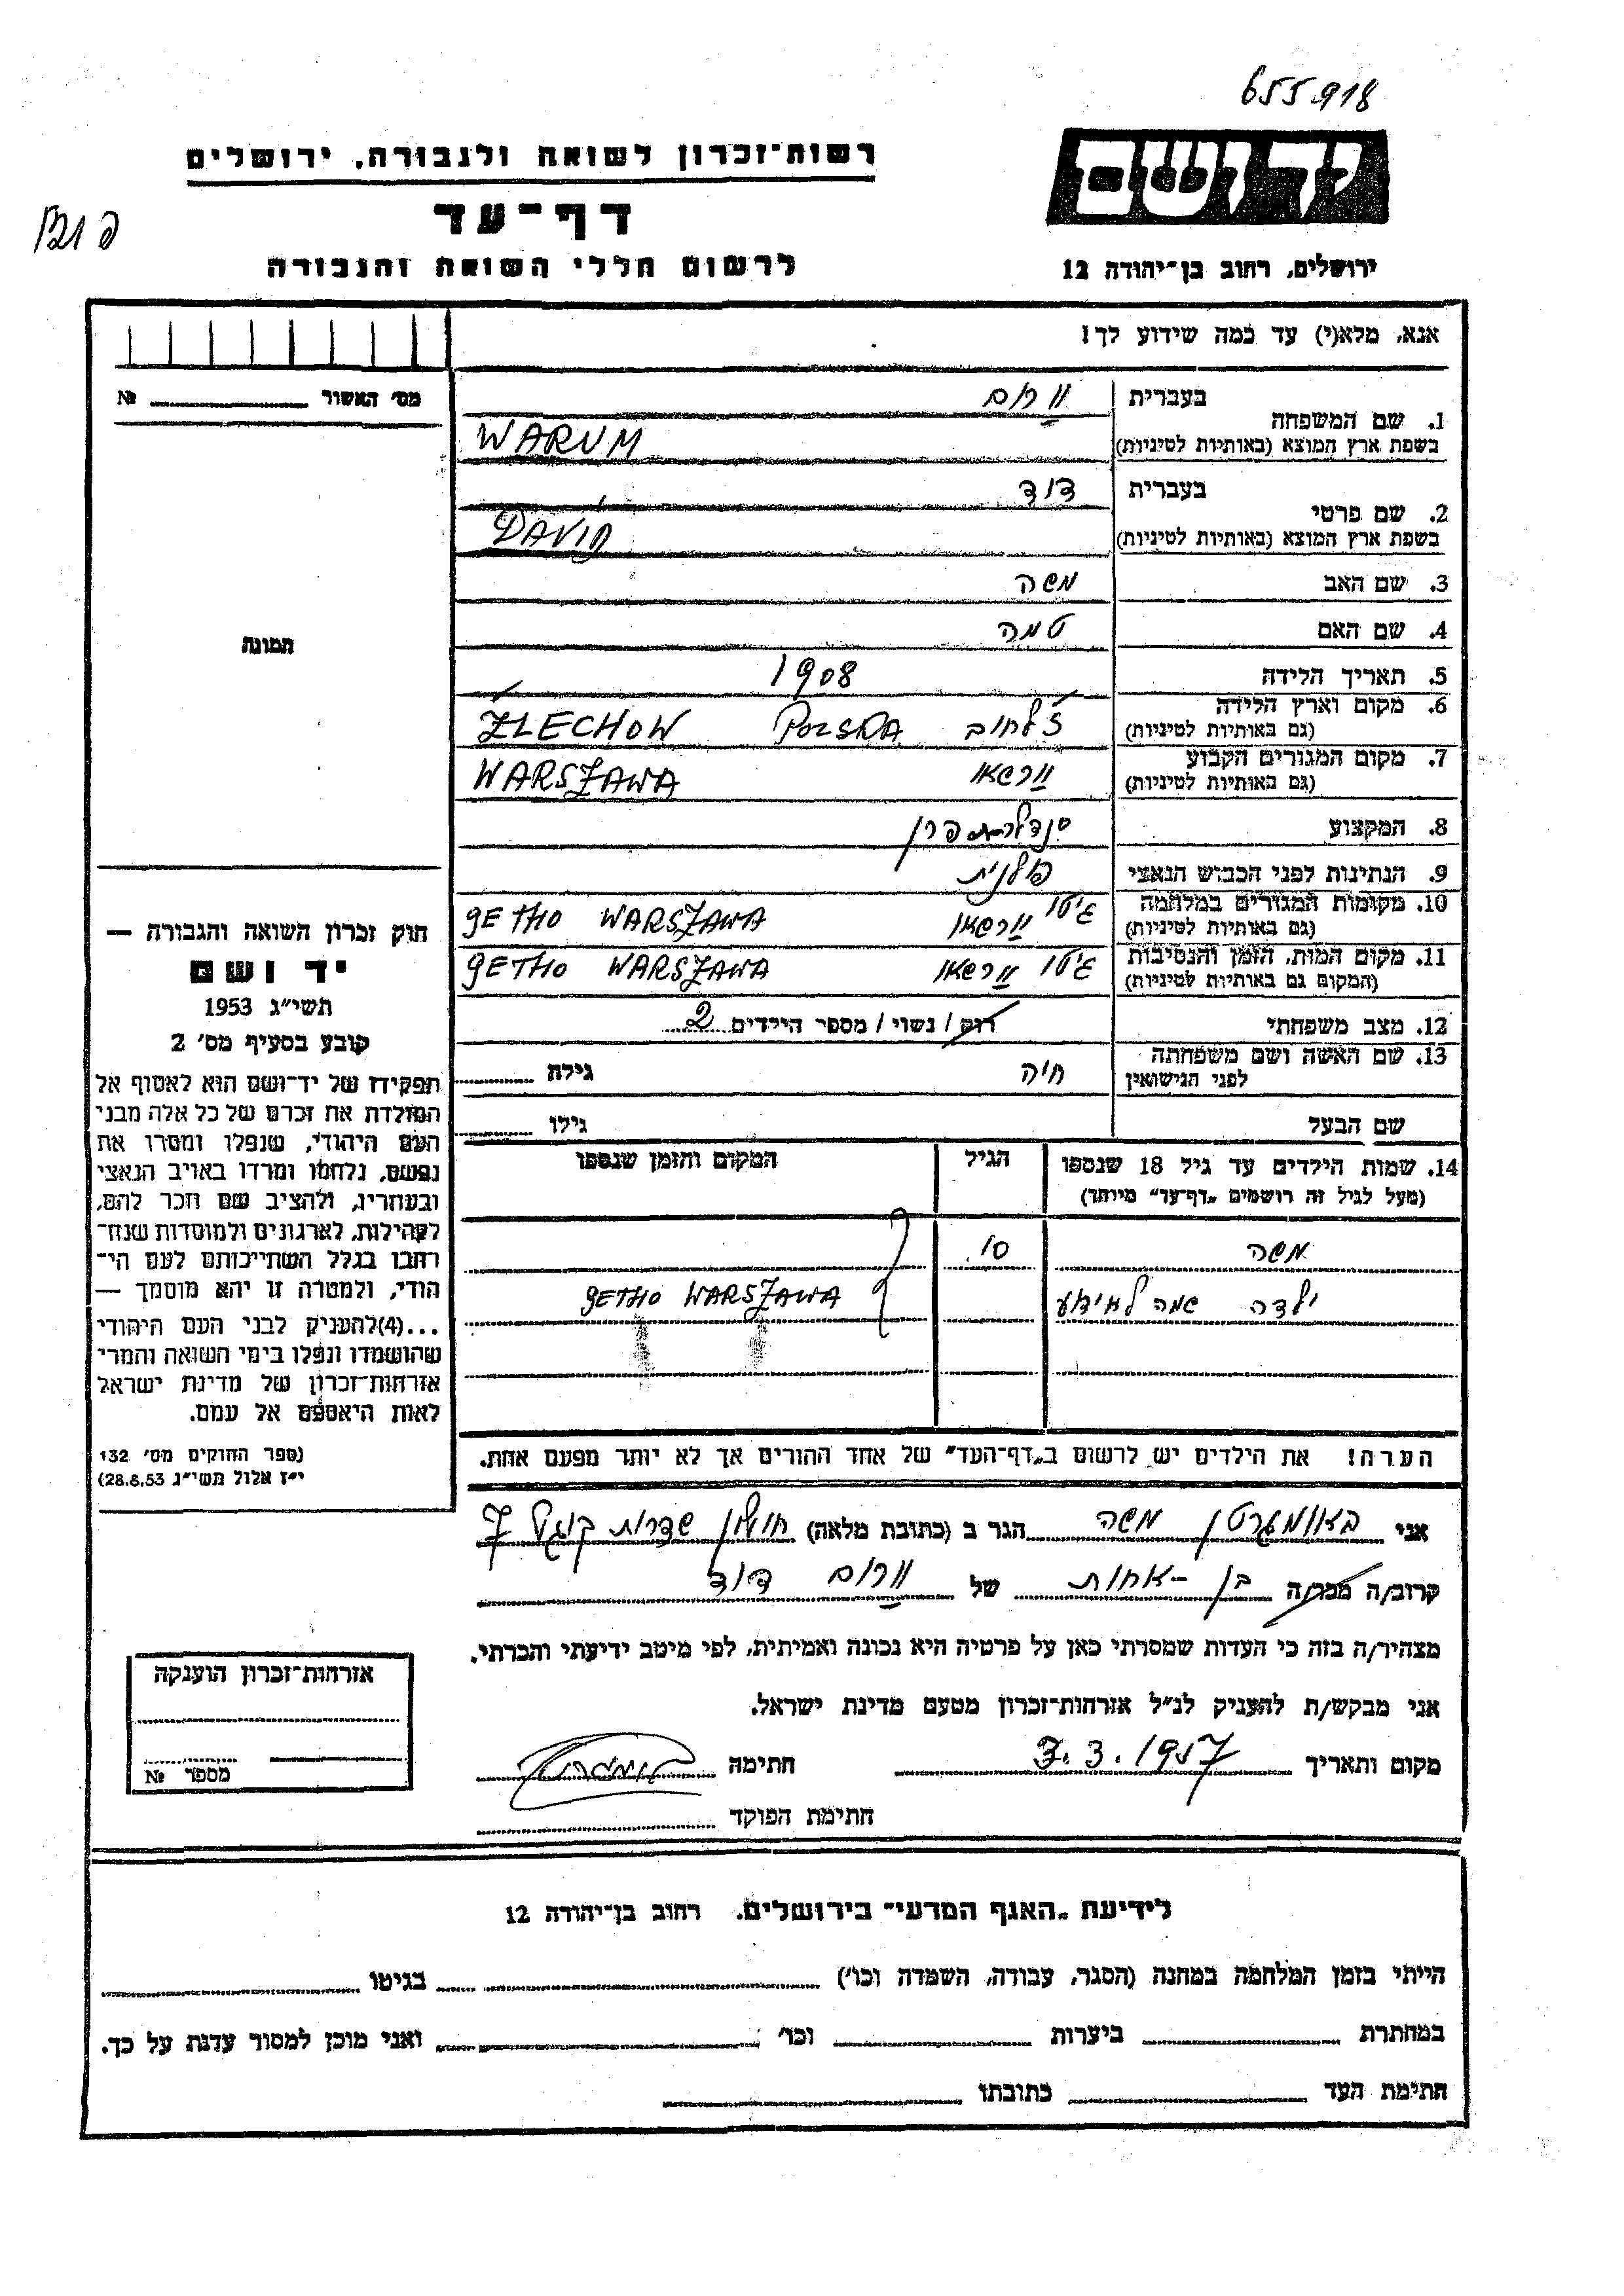 655918
רשות־זכרון לשואה ולגבורה, ירושלים
יד ושם
דף־עד
לרשום חללי השואה והגבורה
ירושלים, רחוב בן־יהודה 12
אנא, מלא(י) עד כמה שידוע לך!
מס׳ האשור № 
1. שם המשפחה
בעברית ווארום
בשפת ארץ המוצא (באותיות לטיניות) WARUM
2. שם פרטי
בעברית דוד
בשפת ארץ המוצא (באותיות לטיניות) DAVID
3. שם האב משה
4. שם האם טמה
5. תאריך הלידה 1908
6. מקום וארץ הלידה (גם באותיות לטיניות) ז'לחוב POLSKA ŻLECHOW
7. מקום המגורים הקבוע (גם באותיות לטיניות) וורשאו WARSZAWA
8. המקצוע
9. הנתינות לפני הכבוש הנאצי פולנית
10. מקומות המגורים במלחמה (גם באותיות לטיניות) גיטו וורשאו GETHO WARSZAWA
11. מקום המות, הזמן והנסיבות (המקום גם באותיות לטיניות) גיטו וורשאו GETHO WARSZAWA
12. מצב משפחתי רוק / נשוי / מספר הילדים 2
13. שם האשה ושם משפחתה לפני הנישואין חיה גילה
שם הבעל גילו
14. שמות הילדים עד גיל 18 שנספו הגיל המקום והזמן שנספו
(מעל לגיל זה רושמים „דף־עד״ מיוחד)
משה 10
ילדה שמה לא ידוע GETHO WARSZAWA
הערה! את הילדים יש לרשום ב„דף־העד״ של אחד ההורים אך לא יותר מפעם אחת.
תמונה
חוק זכרון השואה והגבורה —
יד ושם
תשי״ג 1953
קובע בסעיף מס׳ 2
תפקידו של יד־ושם הוא לאסוף אל
המולדת את זכרם של כל אלה מבני
העם היהודי, שנפלו ומסרו את
נפשם, נלחמו ומרדו באויב הנאצי
ובעוזריו, ולהציב שם וזכר להם,
לקהילות, לארגונים ולמוסדות שנח־
רבו בגלל השתייכותם לעם הי־
הודי, ולמטרה זו יהא מוסמך —
...(4)להעניק לבני העם היהודי
שהושמדו ונפלו בימי השואה והמרי
אזרחות־זכרון של מדינת ישראל
לאות היאספם אל עמם.
(ספר החוקים מס׳ 132
י״ז אלול תשי״ג 28.8.53)
אני באומגרטן משה הגר ב (כתובת מלאה) חולון שדרות קוגל 7
קרוב/ה מכר/ה בן-אחות של ווארום דוד
מצהיר/ה בזה כי העדות שמסרתי כאן על פרטיה היא נכונה ואמיתית, לפי מיטב ידיעתי והכרתי.
אני מבקש/ת להעניק לנ״ל אזרחות־זכרון מטעם מדינת ישראל.
מקום ותאריך 7.3.1957 חתימה
חתימת הפוקד
אזרחות־זכרון הוענקה
מספר №
לידיעת „האגף המדעי״ בירושלים. רחוב בן־יהודה 12
הייתי בזמן המלחמה במחנה (הסגר, עבודה, השמדה וכו׳) בגיטו
במחתרת ביערות וכו׳ ואני מוכן למסור עדות על כך.
חתימת העד כתובתו